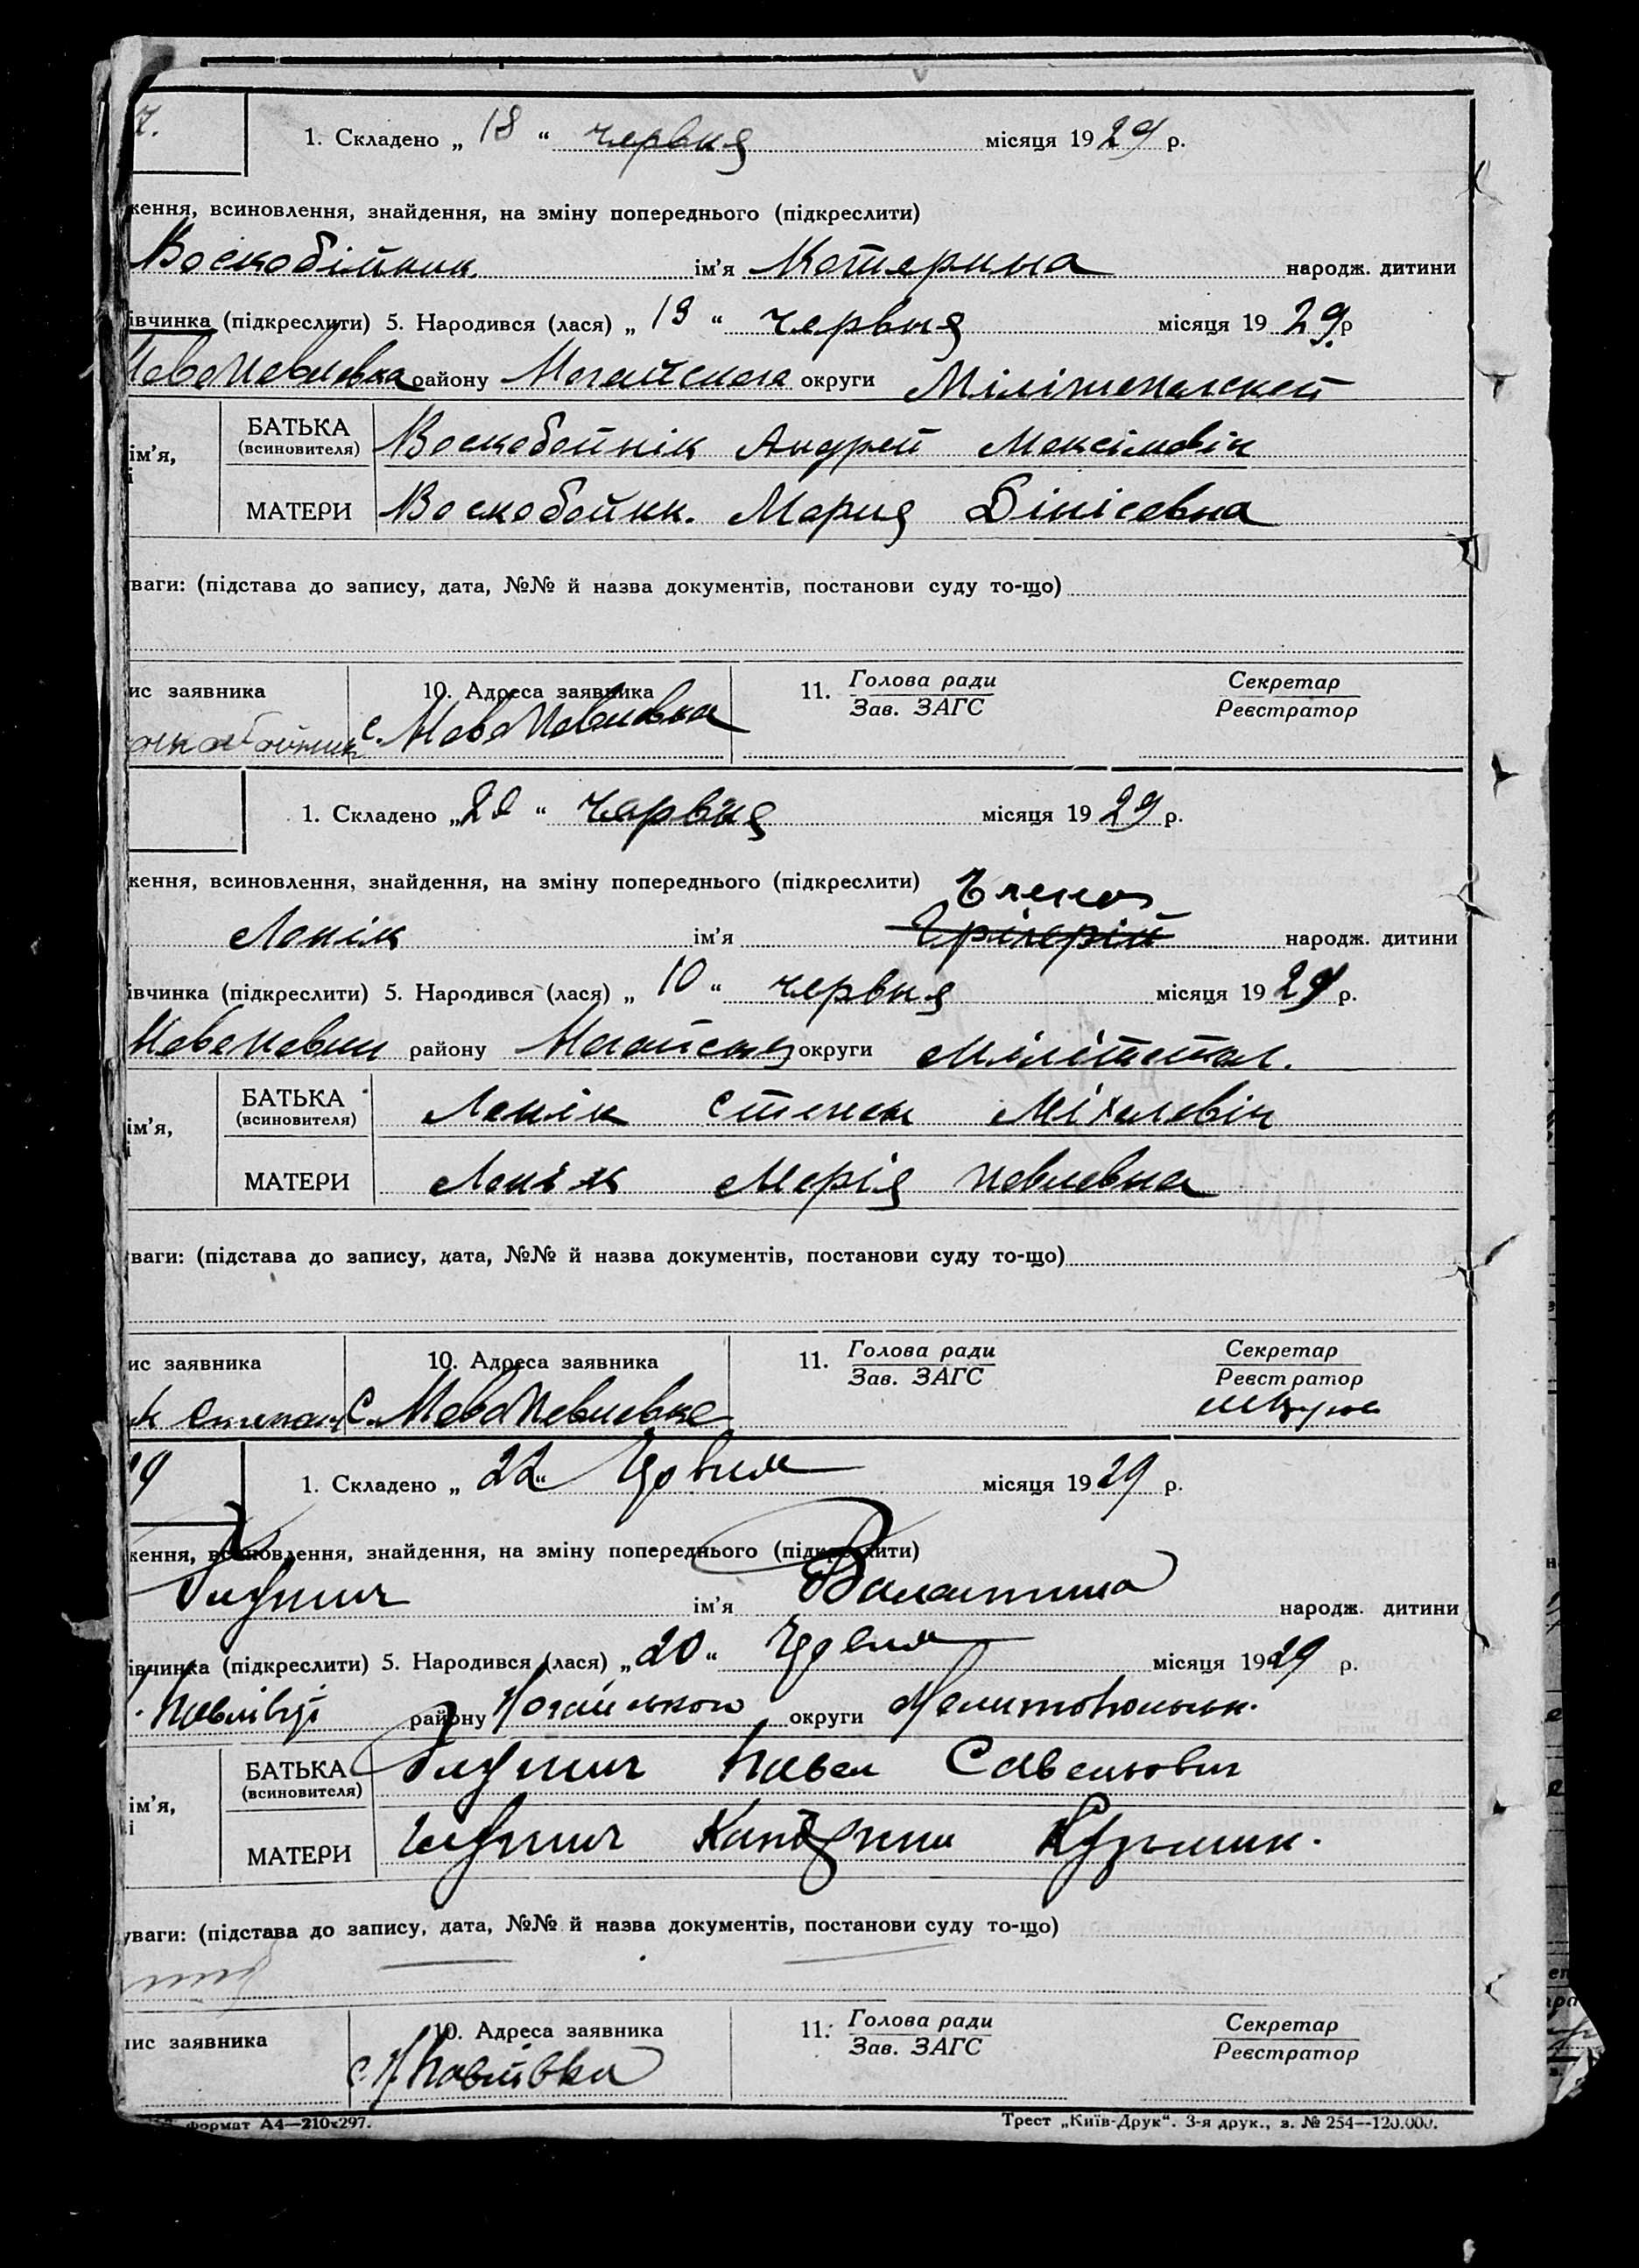 7.
1. Складено „ 18 “ червня місяця 1929 р.
кення, всиновлення, знайдення, на зміну попереднього (підкреслити)
Воскобійник ім’я Котерина народж. дитини
івчинка (підкреслити) 5. Народився (лася) „ 13 “ червня місяця 19 29 р
НовоПавлевка району Ногайского округи Мілітопольскей
БАТЬКА
(всиновителя) Воскобойнік Андрей Максімовіч
ім’я,
і
МАТЕРИ Воскобойнк. Мария Дінісовна
ваги: (підстава до запису, дата, №№ й назва документів, постанови суду то-що)
ис заявника 10. Адреса заявника 11. Голова ради Секретар
Зав. ЗАГС Реєстратор
с. НовоПавловка
1. Складено „ 20 “ червня місяця 19 29 р.
кення, всиновлення, знайдення, на зміну попереднього (підкреслити)
Лепік ім’я Грігорій народж. дитини
івчинка (підкреслити) 5. Народився (лася) „ 10 “ червня місяця 19 29 р.
НовоПавли району округи
БАТЬКА
(всиновителя) Лепік Степан Міхаловіч
ім’я,
і
МАТЕРИ Лепік Марія Павлевна
ваги: (підстава до запису, дата, №№ й назва документів, постанови суду то-що)
ис заявника 10. Адреса заявника 11. Голова ради Секретар
Зав. ЗАГС Реєстратор
к Степан с. НовоПавловка
19
1. Складено „ 22 “ місяця 19 29 р.
кення, всиновлення, знайдення, на зміну попереднього (підкреслити)
ім’я Валантина народж. дитини
івчинка (підкреслити) 5. Народився (лася) „ 20 “ місяця 19 29 р.
. Павлівці району Ногайського округи Мелитопольськ.
БАТЬКА
(всиновителя) Павел Савельович
ім’я,
і
МАТЕРИ
уваги: (підстава до запису, дата, №№ й назва документів, постанови суду то-що)
ис заявника 10. Адреса заявника 11. Голова ради Секретар
Зав. ЗАГС Реєстратор
с. Н Павлівка
формат А4—210x297. Трест „Київ-Друк“. 3-я друк., з. № 254—120.000.